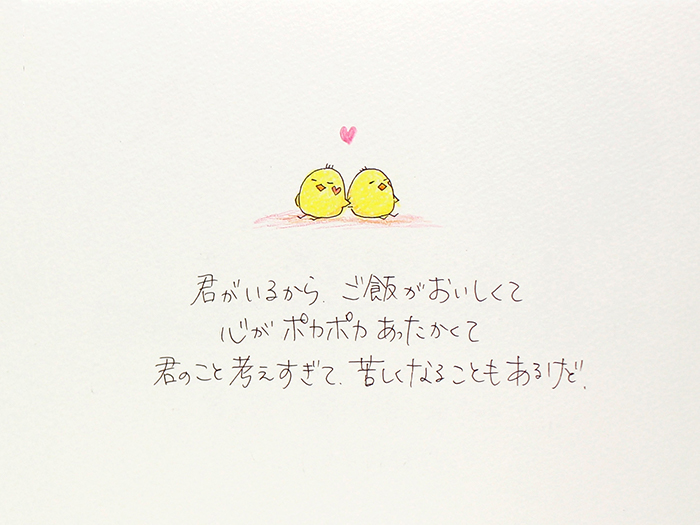 君がいるから、ご飯がおいしくて
心がポカポカあったかくて
君のこと考えすぎて、苦しくなることもあるけど、